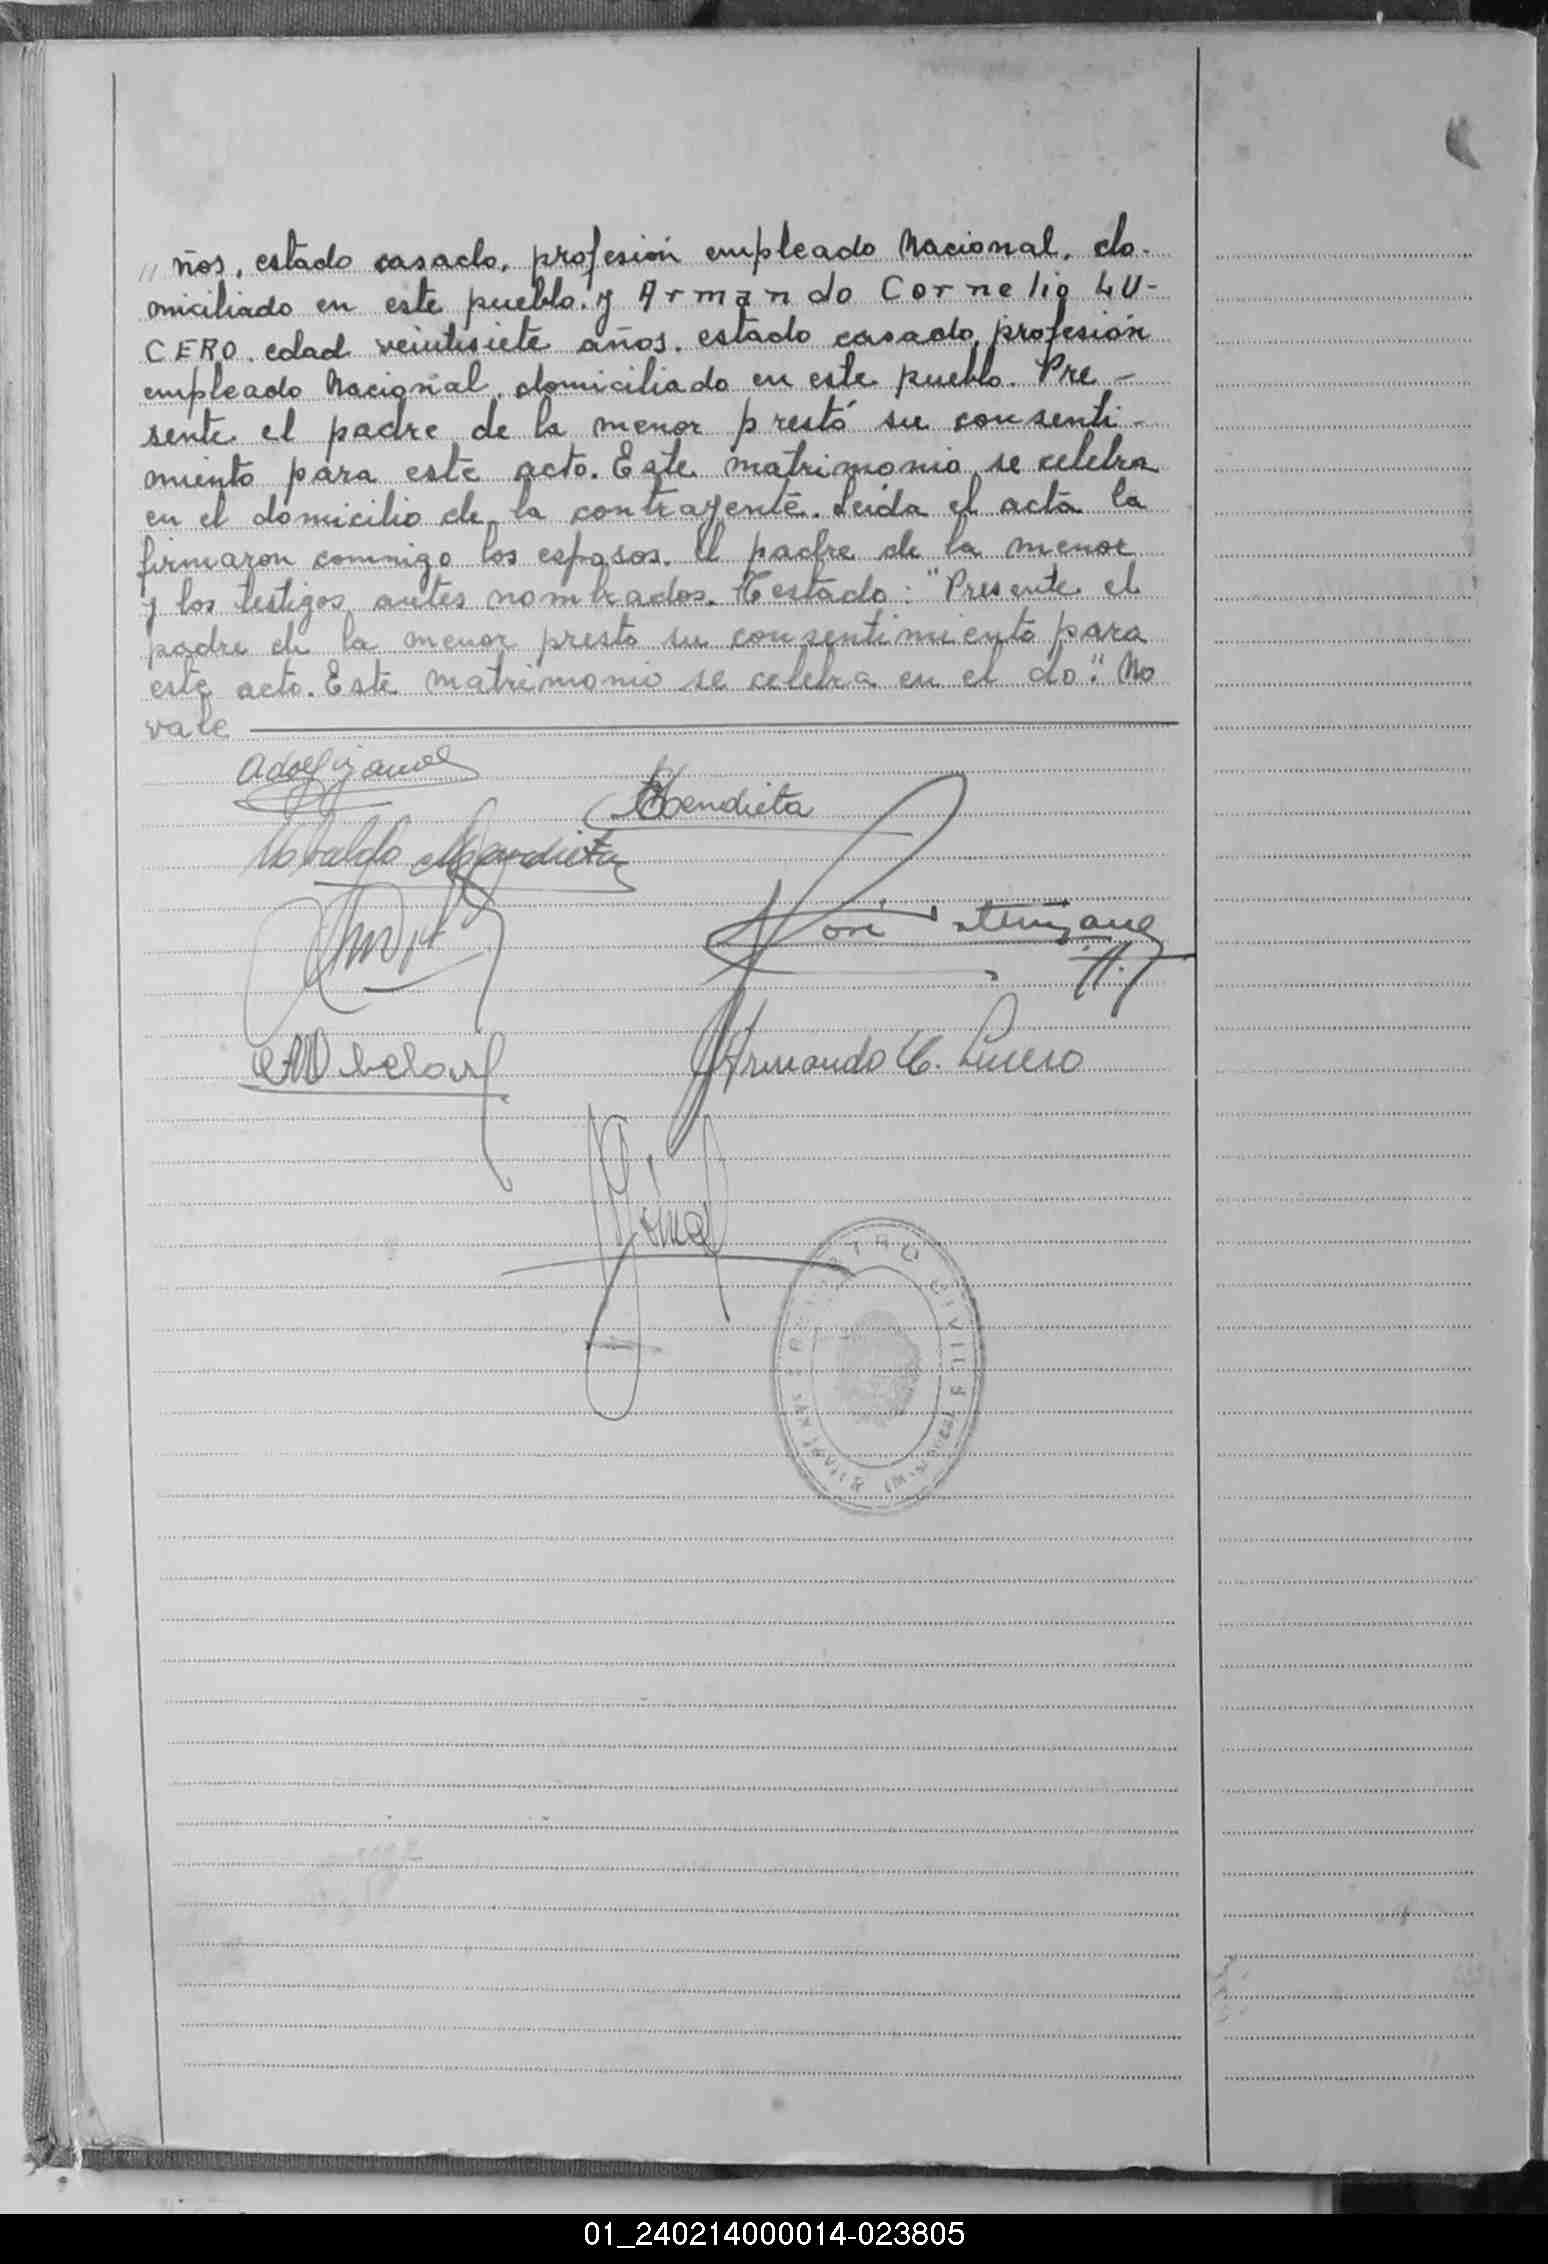 " ños, estado casado, profesión empleado Nacional, do-
miciliado en este pueblo. y Armando Cornelio LU-
CERO. edad veintisiete años. estado casado, profesión
empleado Nacional, domiciliado en este pueblo. Pre-
sente el padre de la menor prestó su consenti-
miento para este acto. Este matrimonio se celebra
en el domicilio de la contrayente. Leida el acta la
firmaron conmigo los esposos. El padre de la menor
y los testigos antes nombrados. Testado: "Presente el
padre de la menor presto su consentimiento para
este acto. Este matrimonio se celebra en el do". No
vale
Mendieta
José
Armando C. Lucero
REGISTRO CIVIL
SAN JAVIER (Misiones)
01_240214000014-023805